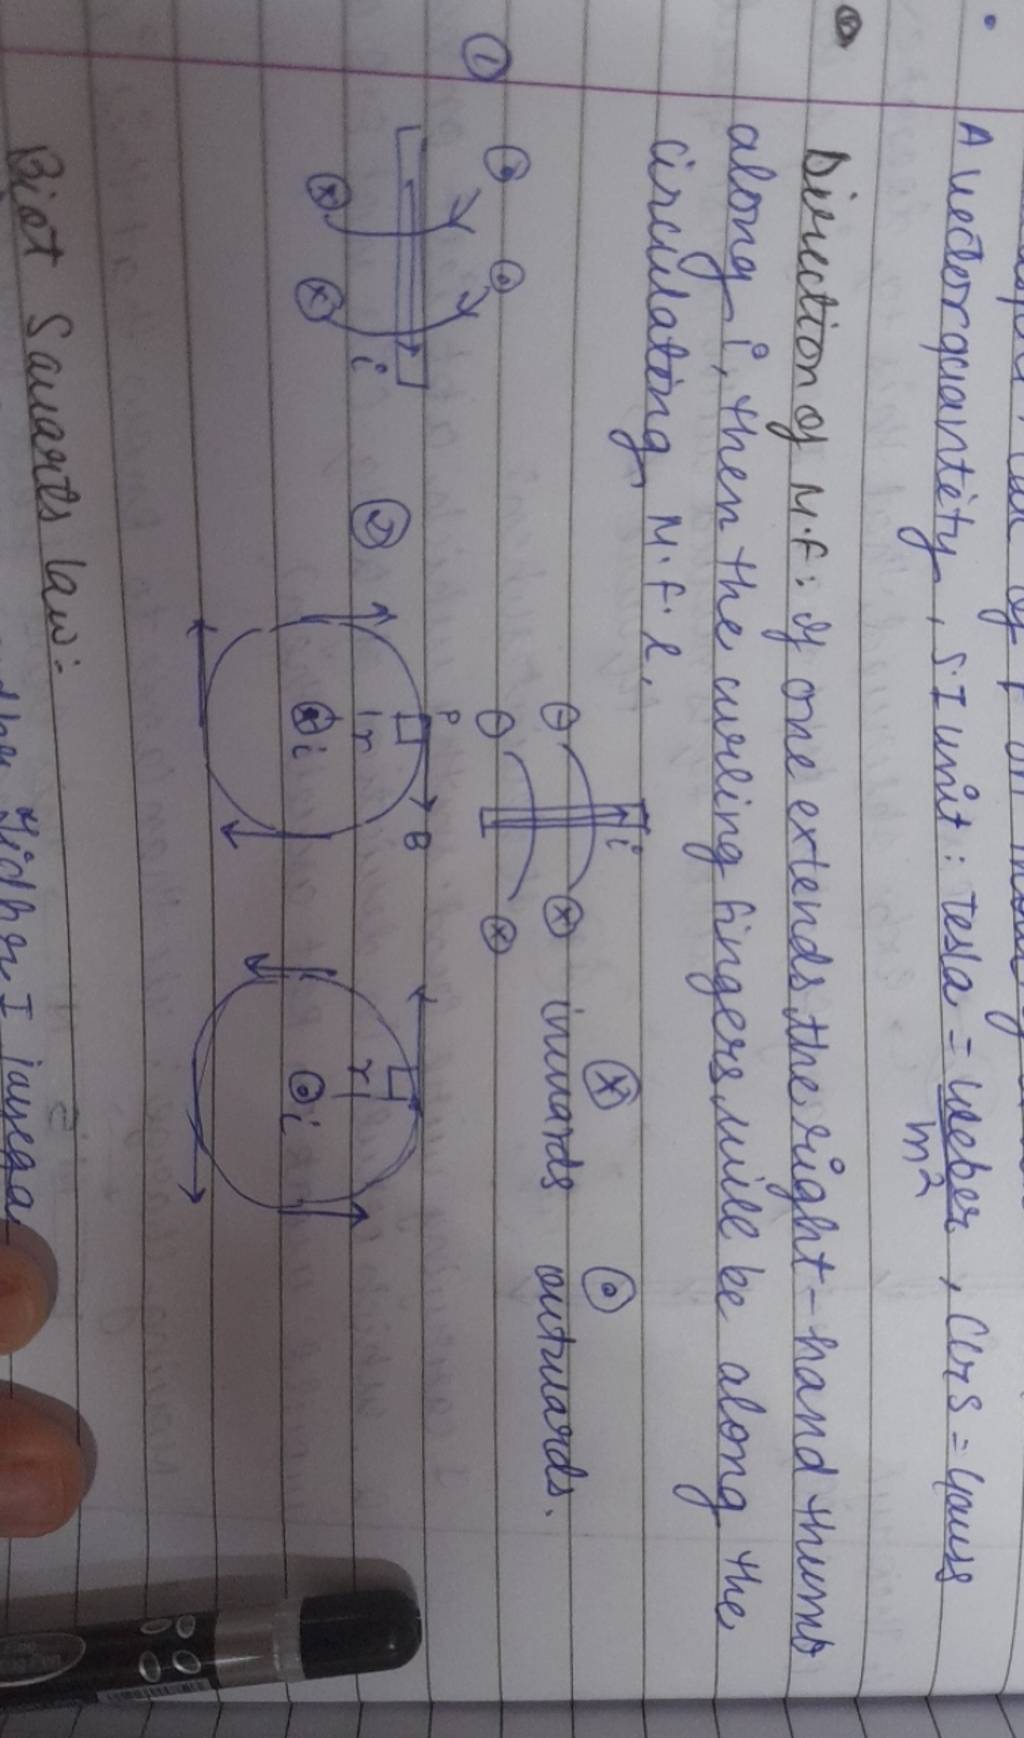 A vector quantity, S.I unit: Tesla = weber / m2, CGS = Gauss
Direction of M.F: If one extends the right-hand thumb
along i, then the curling fingers will be along the
circulating M.F.l.
i
inwards outwards.
①
i
②
P
B
r
i
r
i
Biot Savarts law: